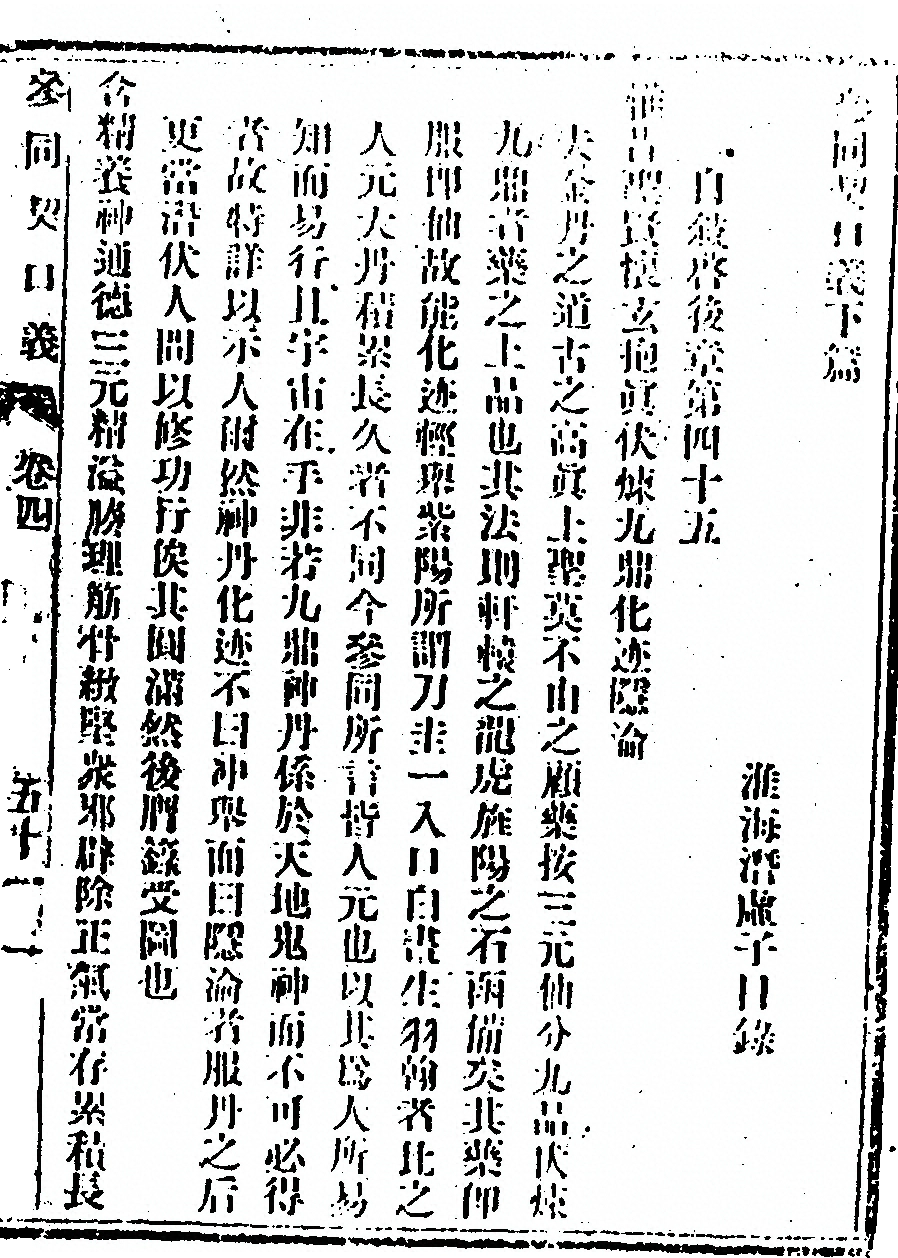 參同契口義下篇
淮海潛虛子口錄
自敘啓後章第四十五
惟昔聖賢懷玄抱眞伏煉九鼎化迹隱淪
夫金丹之道古之高眞上聖莫不由之顧藥按三元仙分九品伏煉
九鼎者藥之上品也其法則軒轅之龍虎旌陽之石函備矣其藥卽
服卽仙故能化迹輕舉紫陽所謂刀圭一入口白晝生羽翰者比之
人元大丹積累長久者不同今參同所言皆人元也以其爲人所易
知而易行且宇宙在乎非若九鼎神丹係於天地鬼神而不可必得
者故特詳以示人耐然神丹化迹不曰冲舉而曰隱淪者服丹之后
更當潛伏人間以修功行俟其圓滿然後膺籙受圖也
含精養神通德三元精溢腠理筋骨緻堅衆邪辟除正氣常存累積長
參同契口義 卷四 五十二